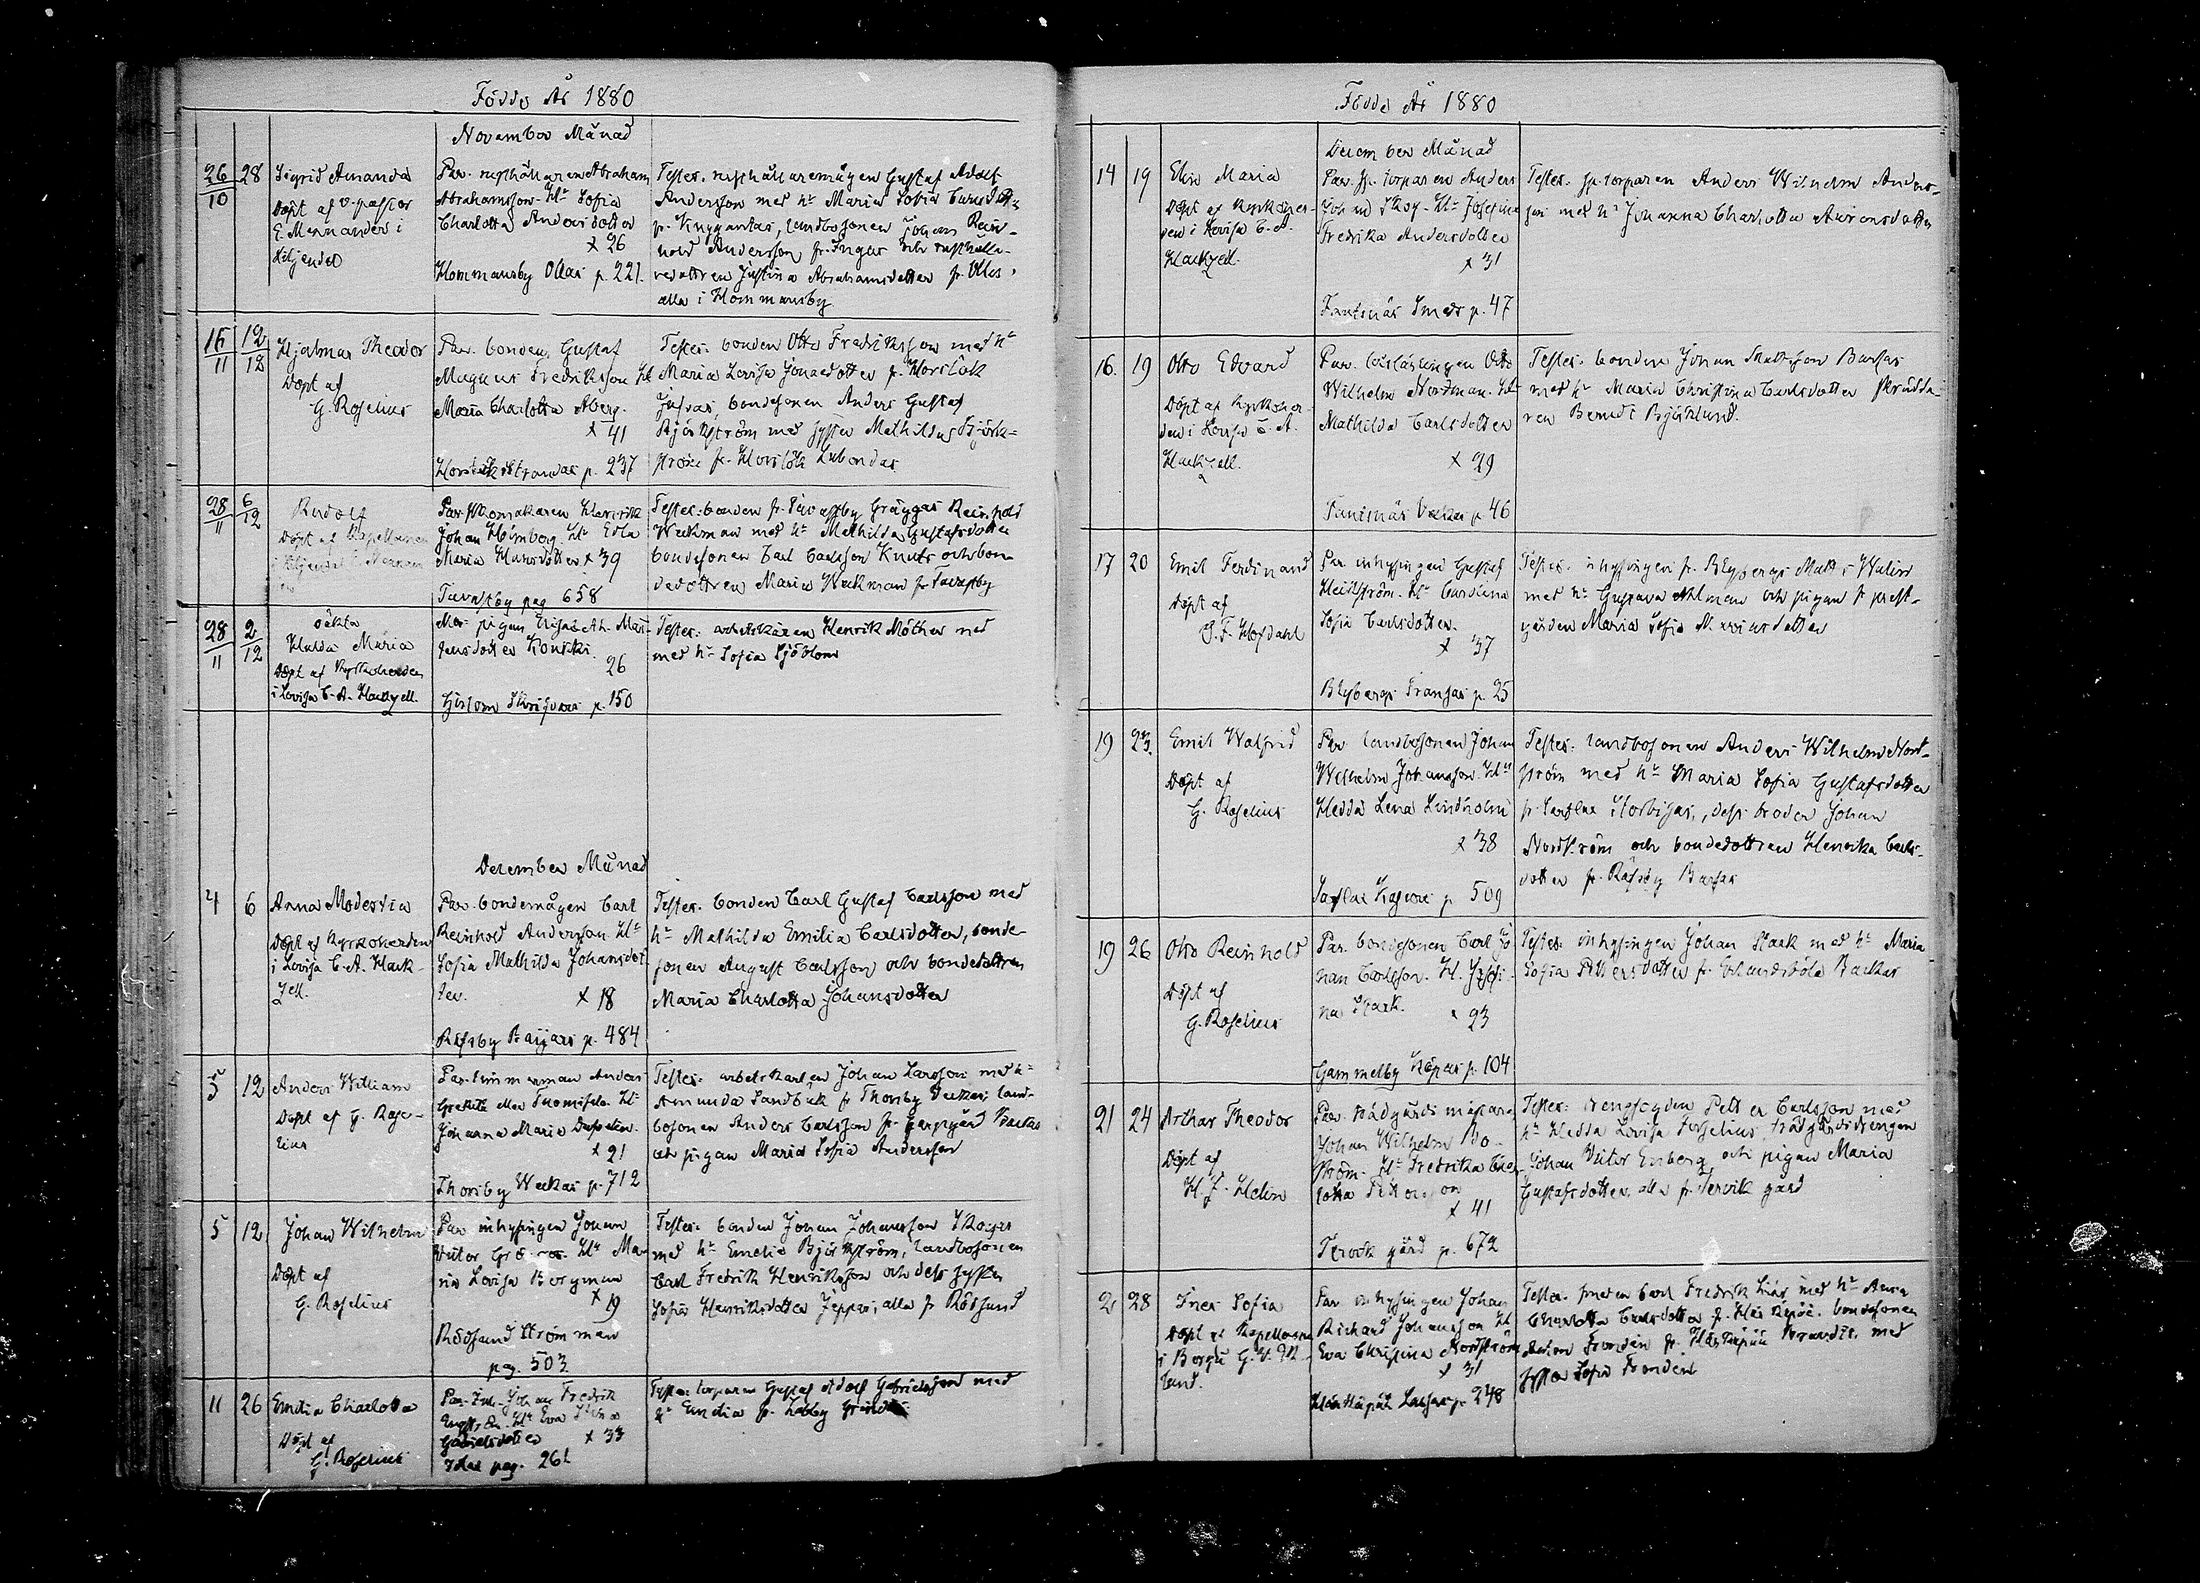 Födde År 1880
November Månad
26/10 28 Sigrid Amanda
Döpt af v. pastor
E. Mennander i
Liljendal
Par. rusthållaren Abraham
Abrahamsson. H:u Sofia
Charlotta Andersdotter
x 26
Hommansby Ollas p. 221.
Testes. rusthållaremågen Gustaf Adolf
Andersson med h:u Maria Sofia
fr. Knggantas, landbosonen Johan Rein-
hold Andersson fr. Ingas och rusthålla-
redottren Justina Abrahamsdotter fr. Ollas,
alla i Hommansby
16/11 12/12 Hjalmar Theodor
Döpt af
G. Roselius
Par. bonden Gustaf
Magnus Fredriksson H
Maria Charlotta Åberg.
x 41
Horslök Strandas p. 237
Testes: bonden Otto Fredriksson med h:u
Maria Lovisa Jonaedotter fr. Horslök
Jusvas, bondesonen Anders Gustaf
Björkström med syster Mathilda Björk-
ström fr. Horslök Lubondas
28/11 6/12 Rudolf
Döpt af Kapellanen
i Liljendal
Par. skomakaren Henrik
Johan Holmberg. H:u Edla
Maria Hansdotter x 39
Tavastby pag 658
Testes. bonden fr. Tavastby Gräggas Reinhold
Weckman med h:u Mathilda Gustafsdotter
bondesonen Carl Carlsson Knuts och bon-
dedottren Maria Weckman fr. Tavastby
28/11 2/12 oäkta
Hulda Maria
Döpt af Kyrkoherden
i Lovisa C. A. Hackzell.
Mor. pigan Elisabeth Mårt-
tensdotter
26
p. 150
Testes: arbetskaren Henrik Möther med
med h:u Sofia Sjöblom
December Månad
4 6 Anna Modestia
Döpt af Kyrkoherden
i Lovisa C. A. Hack-
zell.
Par. bondemågen Carl
Reinhold Andersson. H:u
Sofia Mathilda Johansdot-
ter. x 18
Räfsby Baijars p. 484
Testes. bonden Carl Gustaf Carlsson med
h:u Mathilda Emilia Carlsdotter, bonde-
sonen August Carlsson och bondedottren
Maria Charlotta Johansdotter
5 12 Anders William
Döpt af G. Rose-
lius
Par. timmerman Anders
Johanna Maria
x 21
Thorsby Weckas p. 712
Testes: arbetskarlen Johan Larsson med h:u
Amanda Sandbäck fr. Thorsby Weckas land-
bosonen Anders Carlsson fr. Garpgård Backas
och pigan Maria Sofia Andersson
5 12 Johan Wilhelm
Döpt af
G. Roselius
Par inhysingen Johan
Viktor H:u Ma-
ria Lovisa Borgman
x 19
Rödsund Ström man
pag. 503
Testes: bonden Johan Johansson Skogis
med h:u Emelia Björkström, landbosonen
Carl Fredrik Henriksson och dess syster
Sofia Henriksdotter Jeppas, alla fr. Rödsund
11 26 Emilia Charlotta
Döpt af
G. Roselius
Par. Inh. Johan Fredrik
H:u Eva Lena
Gabrielsdotter x 33
pag. 261
Testes: torparen Gustaf Adolf Gabrielsson med
h:u Emelia fr. Labby
Födde År 1880
December Månad
14 19 Elin Maria
Döpt af Kyrkoher-
den i Lovisa C. A.
Hackzell.
Par. sp. torparen Anders
Johan Skog. H:u Josefina
Fredrika Andersdotter
x 31
Fantsnäs Smeds p. 47
Testes. sp. torparen Anders Wilhelm Anders-
son med h:u Johanna Charlotta Aaronsdotter
16. 19 Otto Edvard
Döpt af Kyrkoher-
den i Lovisa C. A.
Hackzell.
Par. Otto
Wilhelm Nordman. H:u
Mathilda Carlsdotter
x 29
p 46
Testes. bonden Johan Mattsson Bursas
med h:u Maria Christina Carlsdotter skrädda-
ren Berndt Björklund.
17 20 Emil Ferdinand
Döpt af
G. F. Hofdahl
Par inhysingen Gustaf
Heickström. H:u Carolina
Sofia Carlsdotter.
x 37
Blybergs Fransas p. 25
Testes. inhysingen fr. Blybergs Matts Walin
med h:u Gustava Ahlman och pigan fr. prest-
gården Maria Sofia
19 23. Emil Walfrid
Döpt af
G. Roselius
Par landbosonen Johan
Wilhelm Johansson. H:u
Hedda Lena Lindholm
x 38
p 509
Testes. landbosonen Anders Wilhelm Nord-
ström med h:u Maria Sofia Gustafsdotter
fr. dess broder Johan
Nordström och bondedottren Henrika Carls-
dotter fr. Räfsby Bursas
19 26 Otto Reinhold
Döpt af
G. Roselius
Par. bondesonen Carl Jo-
han Carlsson. H. Josefi-
na Stark.
x 23
Gammelby Köpas p. 104
Testes: inhysingen Johan Stark med h:u Maria
Sofia Pettersdotter fr. Erlandsböle Backas
21 24 Arthur Theodor
Döpt af
H. J. Helin
Par. trädgårdsmästaren
Johan Wilhelm Bo-
ström. H:u Fredrika Char-
lotta Pettersson
x 41
Tervik gård p. 672
Testes: drengfogden Petter Carlsson med
h:u Hedda Lovisa Forselius, trädgårdsdrengen
Johan Viktor Enberg och pigan Maria
Gustafsdotter, alla fr. Tervik gård
2 28 Ines Sofia
Döpt af Kapellanen
i Borgå G. V.
lund.
Par inhysingen Johan
Richard Johansson H
Eva Christina Nordström
x 31
p. 248
Testes. smeden Carl Fredrik Lind med h:u Anna
Charlotta Carlsdotter fr. bondesonen
Anton Frondén fr. med
syster Sofia Frondén